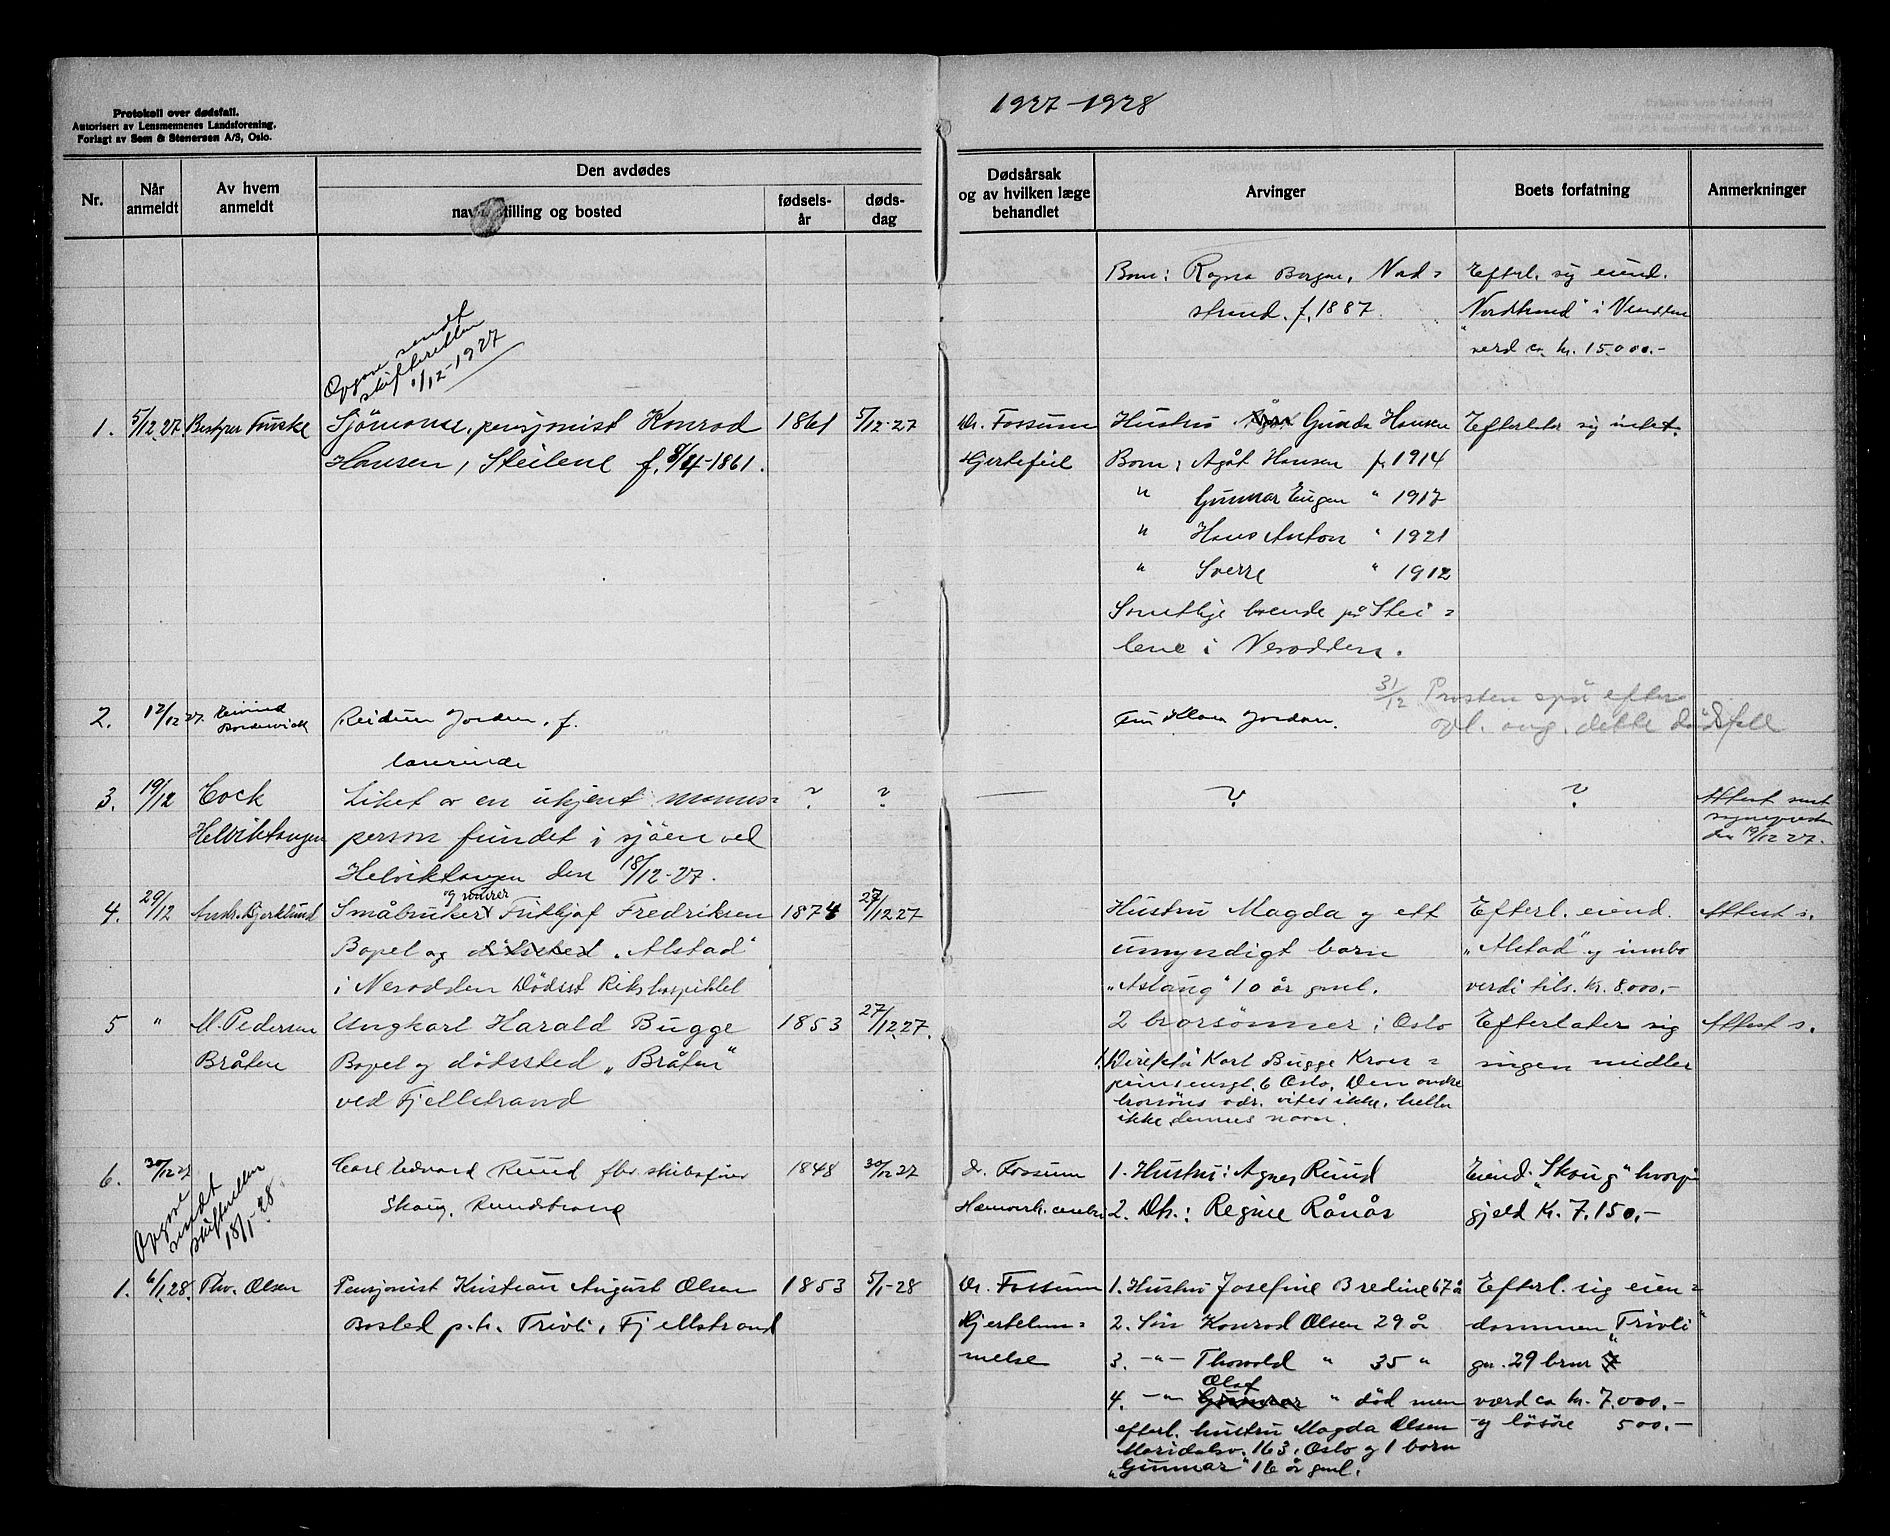 Protokoll over dødsfall.
Autorisert av Lensmennenes Landsforening.
Forlagt av Sem & Stenersen A/S, Oslo.
1927-1928
Nr.
Når anmeldt
Av hvem anmeldt
Den avdødes
navn, stilling og bosted
fødsels-år
døds-dag
Dødsårsak og av hvilken læge behandlet
Arvinger
Boets forfatning
Anmerkninger
Barn: Ragna Bergan, Nord=
strand. f. 1887.
Efterl. sig eiend.
"Nordstrand" i Nesodden
verd ca. kr. 15.000.-
Opgave sendt
skifteretten
1/12-1927
1. 5/12 27 Bestyrer Fuske Sjömann, pensjonist Konrad 1861 5/12-27 Dr. Fossum Hustru Gunda Hansen Efterlater sig intet.
Hansen, Steilene f. 8/4-1861. Hjertefeil Barn: Agåt Hansen f. 1914
" Gunnar Eugen " 1917
" Hans Anton " 1921
" Sverre " 1912
Samtlige boende på Stei=
lene i Nesodden.
31/12 Presten spör efter
opl. ang. dette dödsfall
2. 12/12 27. Reidun Jordan. f. Fru Klara Jordan.
lærerinde
3. 19/12 Cock Liket av en ukjent manns= ? ? — ? ? Attest sendt
Helviktangen person fundet i sjöen ved sognepresten
den 19/12 27.
Helviktangen den 18/12-27.
og murer
4. 29/12 Andr. Bjerklund Småbruker Fritjof Fredriksen 1874 27/12 27 Hustru Magda og ett Efterl. eiend. Attest s.
Bopel og dödssted "Alstad" umyndigt barn "Alstad" og innbo
i Nesodden Dödsst Rikshospitalet "Aslaug" 10 år gml. verdi tils. kr. 8.000.-
5 " M. Pedersen Ungkarl Harald Bugge 1853 27/12 27. 2 brorsönner i Oslo Efterlater sig Attest s.
Bråten Bopel og dödssted "Bråten" 1. Direktör Karl Bugge Kron= ingen midler
prinsensgt. 6 Oslo. Den andre
ved Fjellstrand brorsöns adr. vites ikke, heller
ikke dennes navn.
6. 30/12 27 Carl Edvard Ruud fhv. skibsförer 1848 30/12 27 Dr. Fossum 1. Hustru: Agnes Ruud Eiend. "Skaug" hvorpå
Skaug, Hæmorrh. cerebri 2. Dtr.: Regine Rånås gjeld kr. 7.150.-
Opgave
sendt
skifteretten
18/1-28.
1. 6/1 28. Thv. Olsen Pensjonist Kristian August Olsen 1853 5/1-28 Dr. Fossum 1. Hustru Josefine Bredine 67 å Efterl. sig eien=
Bosted p.t. Trivli, Fjellstrand Hjertelam= 2. Sön Konrad Olsen 29 år dommen "Trivli"
melse 3. -"- Thorvald " 35 " gnr. 29 brnr 7
Olaf
4. -"- Gunnar " död men værd ca kr. 7.000.-
efterl. hustru Magda Olsen og lösöre 500.-
Maridalsv. 163, Oslo og 1 barn
"Gunnar" 16 år gml.